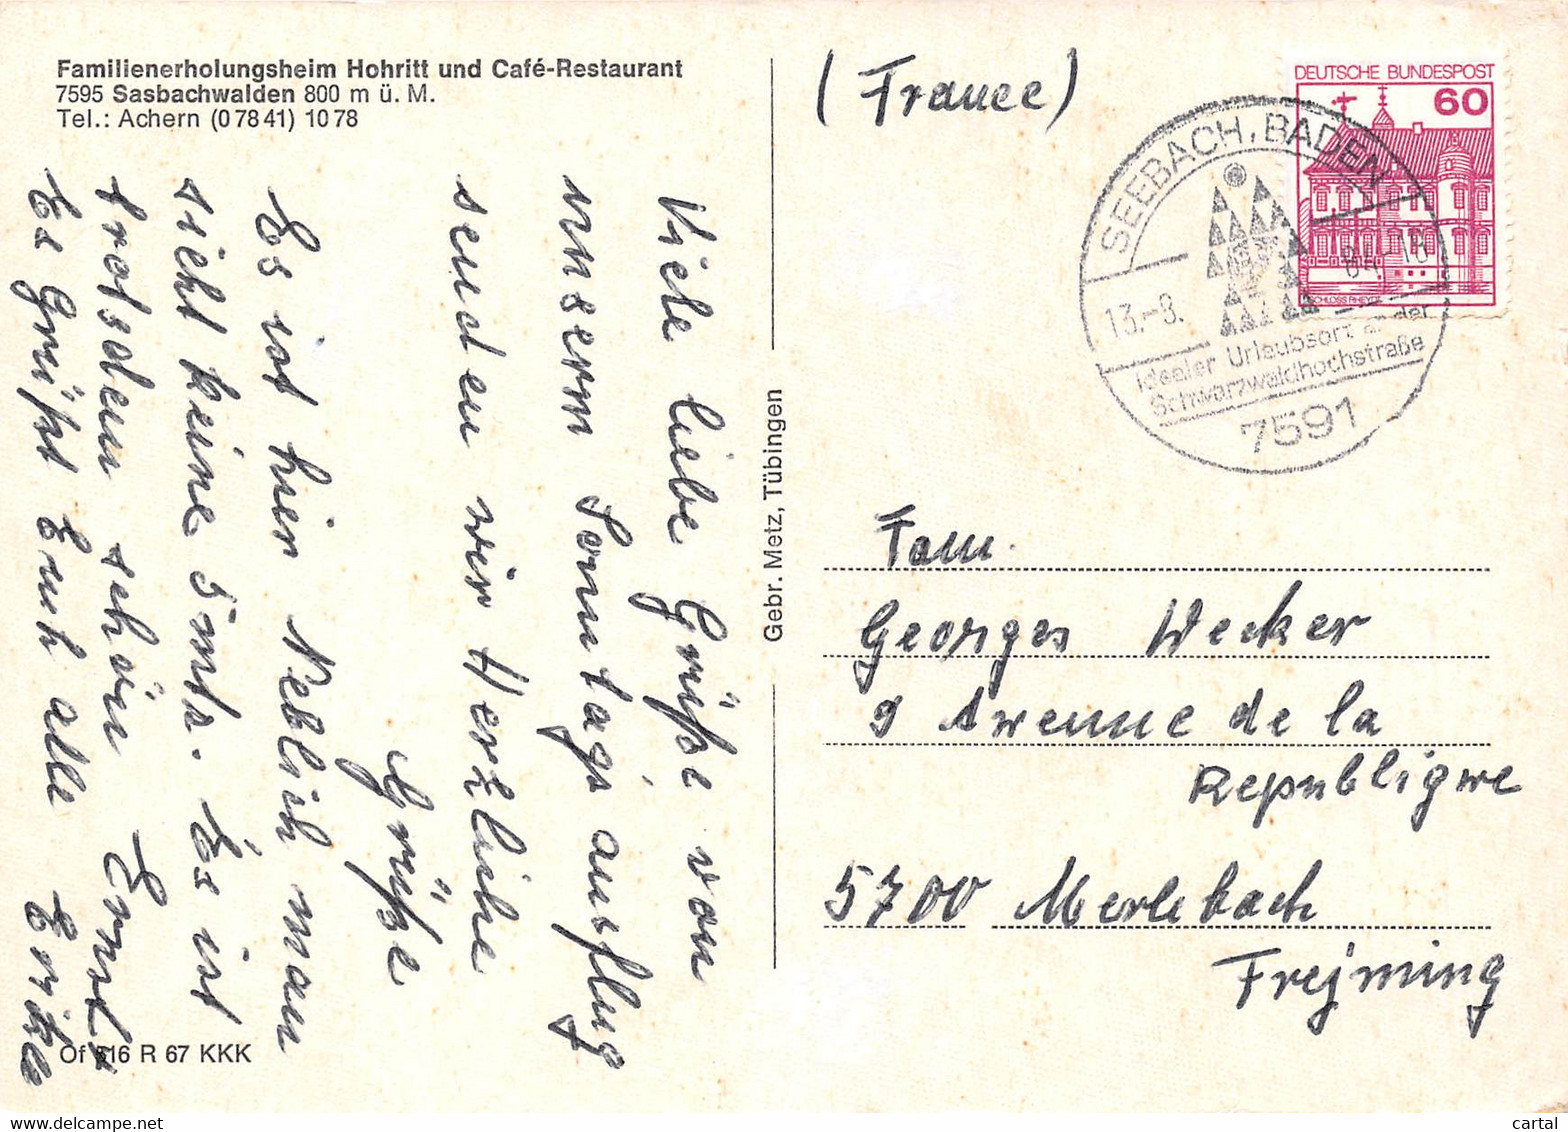 Familienerholungsheim Hohritt und Café-Restaurant
7595 Sasbachwalden 800 m ü. M.
Tel.: Achern (0 78 41) 10 78
Viele liebe Grüße von
unserm Sonntagsausflug
senden wir Herzliche
Grüße
Es ist hier Neblich man
sieht keine 5 mtr. Es ist
trotsdem schön Ernst
Es grüßt Euch alle Erika
Of 516 R 67 KKK
Gebr. Metz, Tübingen
(France)
DEUTSCHE BUNDESPOST
60
SCHLOSS RHEYDT
SEEBACH, BADEN
13.-8. 84-18
Idealer Urlaubsort an der
Schwarzwaldhochstraße
7591
Fam.
Georges Wecker
9 Awenue de la
Republigwe
5700 Merlebach
Frejming
cartal